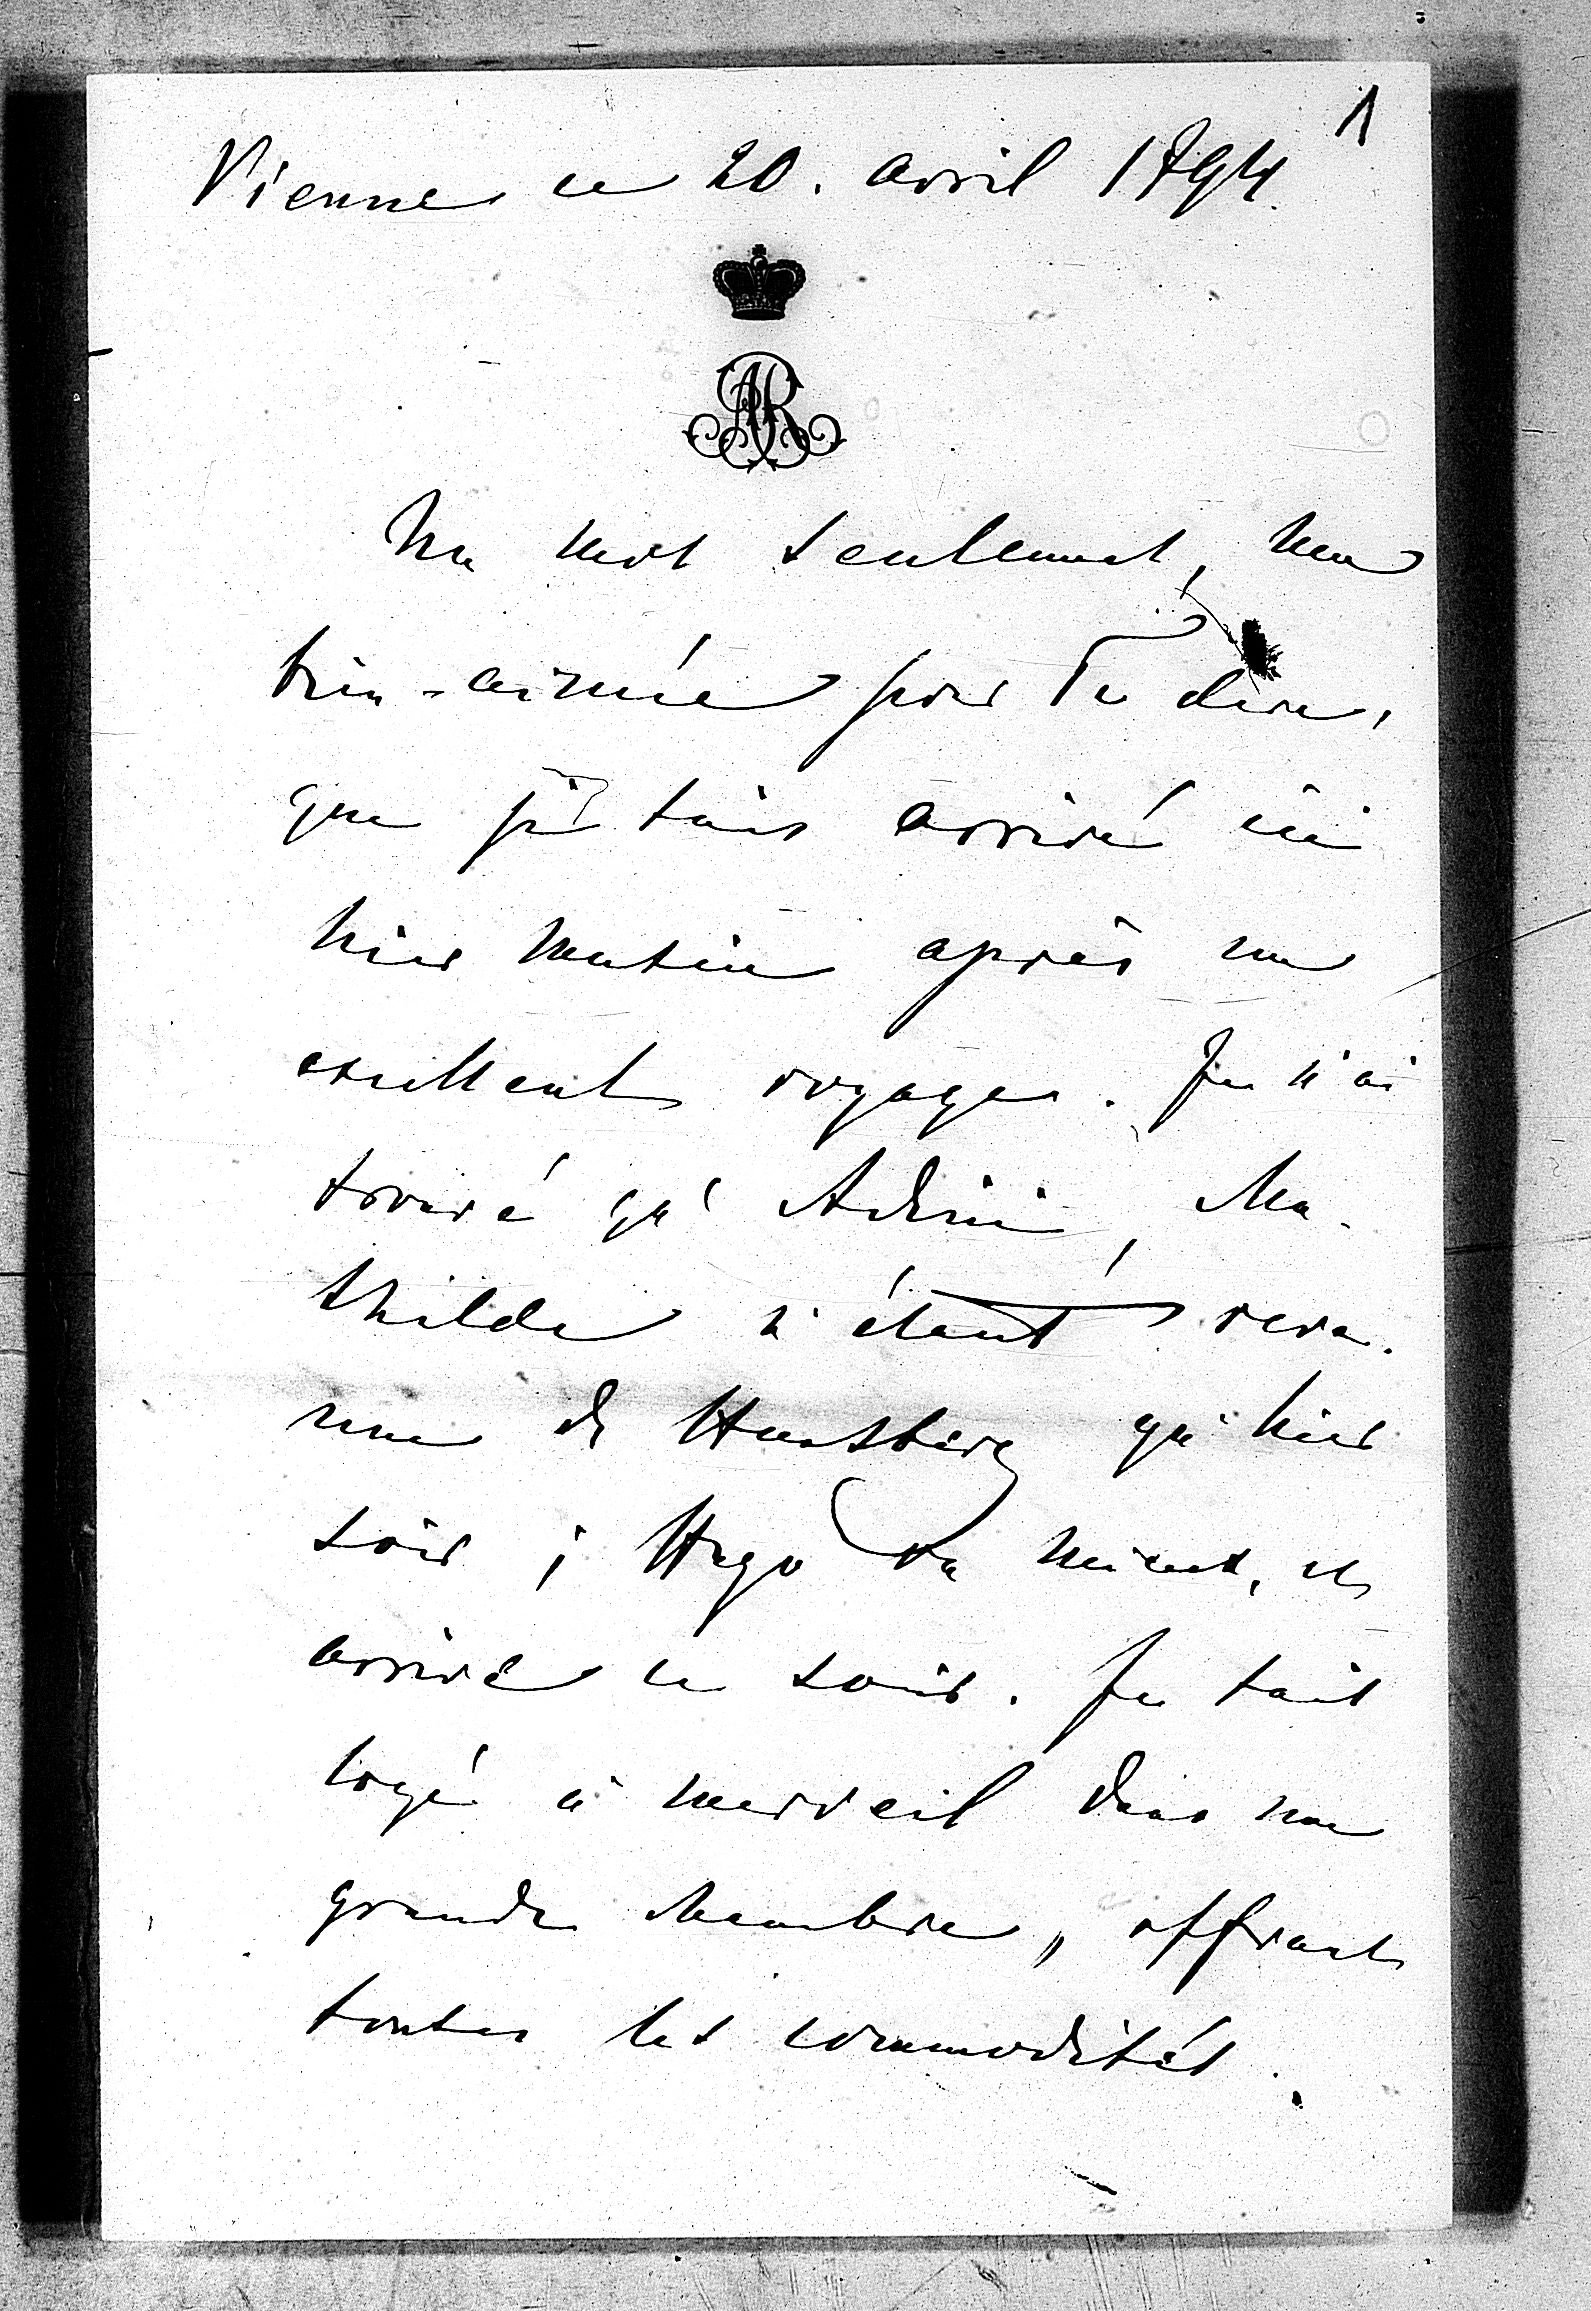 1
Vienne ce 20. avril 1894.
AR
Un mot seulement, ma
bien-aimée pour Te dire,
que je suis arrivé ici
hier matin après un
excellent voyage. Je n'ai
trouvé qu' Adini, Ma-
thilde n'étant reve-
nue de qu'hier
soir; Hugo va mieux, et
arrive ce soir. Je suis
logé à merveil dans une
grande chambre, offrant
toutes les commodités.